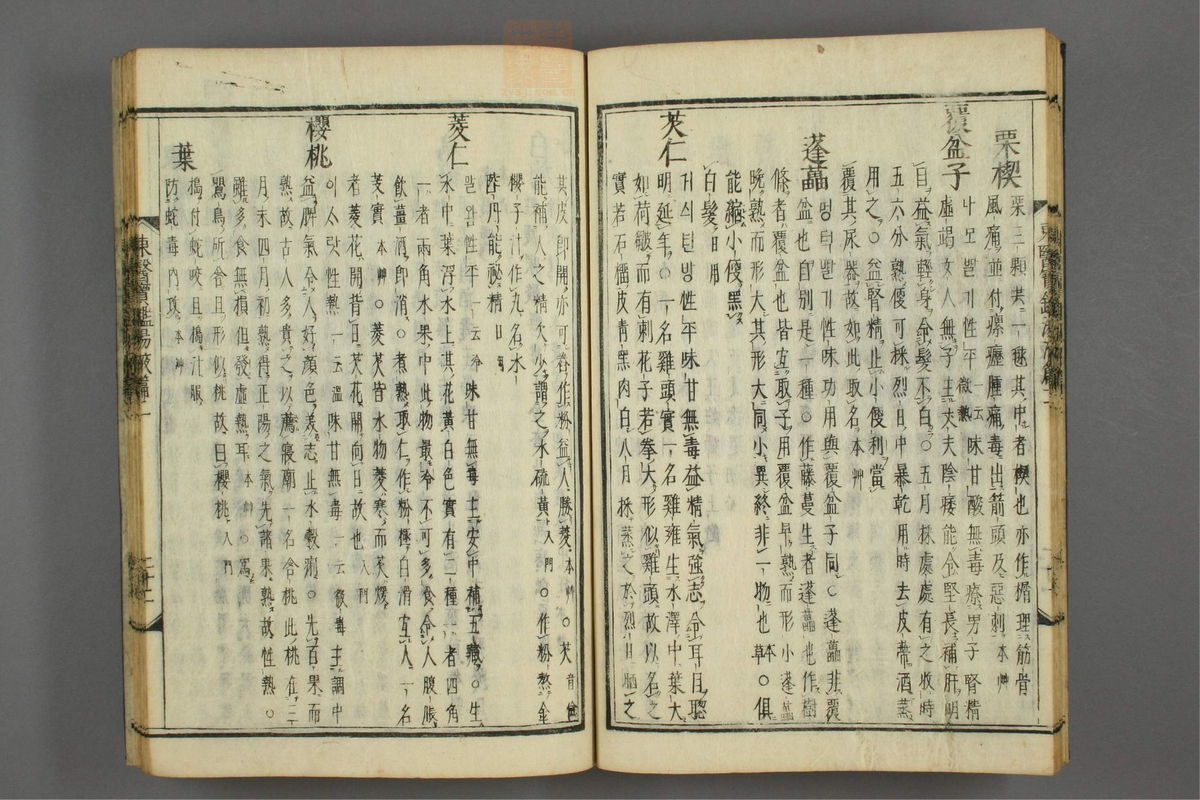 栗楔
栗三顆共一毬其中者楔也亦作㮋理筋骨
風痛並付瘰癧腫痛毒出箭頭及惡刺本艸
覆盆子
나모ᄠᅡᆯ기性平微熱一云味甘酸無毒療男子腎精
虛竭女人無子主丈夫陰痿能令堅長補肝明
目益氣輕身令髮不白○五月採處處有之收時
五六分熟便可採烈日中暴乾用時去皮蔕酒蒸
用之○益腎精止小便利當
覆其尿器故如此取名本艸
蓬藟
멍덕ᄠᅡᆯ기性味功用與覆盆子同○蓬藟非覆
盆也自別是一種○作藤蔓生者蓬藟也作樹
條者覆盆也皆宜取子用覆盆早熟而形小蓬藟
晚熟而形大其形大同小異終非一物也本草○俱
能縮小便黑
白髮日用
芡仁
거싀년밤性平味甘無毒益精氣強志令耳目聰
明延年○一名雞頭實一名雞雍生水澤中葉大
如荷皺而有刺花子若拳大形似雞頭故以名之
實若石榴皮靑黑肉白八月採蒸之於烈日晒之
其皮卽開亦可舂作粉益人勝菱本艸○芡音儉
能補人之精欠少謂之水硫黃入門○作粉熬金
櫻子汁作丸名水
陸丹能祕精日用
菱仁
말왐性平一云冷味甘無毒主安中補五藏○生
水中葉浮水上其花黃白色實有二種一者四角
一者兩角水果中此物最冷不可多食令人腹脹
飮薑酒卽消○煮熟取仁作粉極白滑宜人一名
菱實本艸○菱芡皆水物菱寒而芡煖
者菱花開背日芡花開向日故也入門
櫻桃
이ᄉᆞ랏性熱一云溫味甘無毒一云微毒主調中
益脾氣令人好顏色美志止水穀痢○先百果而
熟故古人多貴之以薦寢廟一名含桃此桃在三
月末四月初熟得正陽之氣先諸果熟故性熱○
雖多食無損但發虛熱耳本艸○爲
鸎鳥所含且形似桃故曰櫻桃入門
葉
搗付蛇咬且搗汁服
防蛇毒內攻本艸
東醫寶鑑湯液篇二